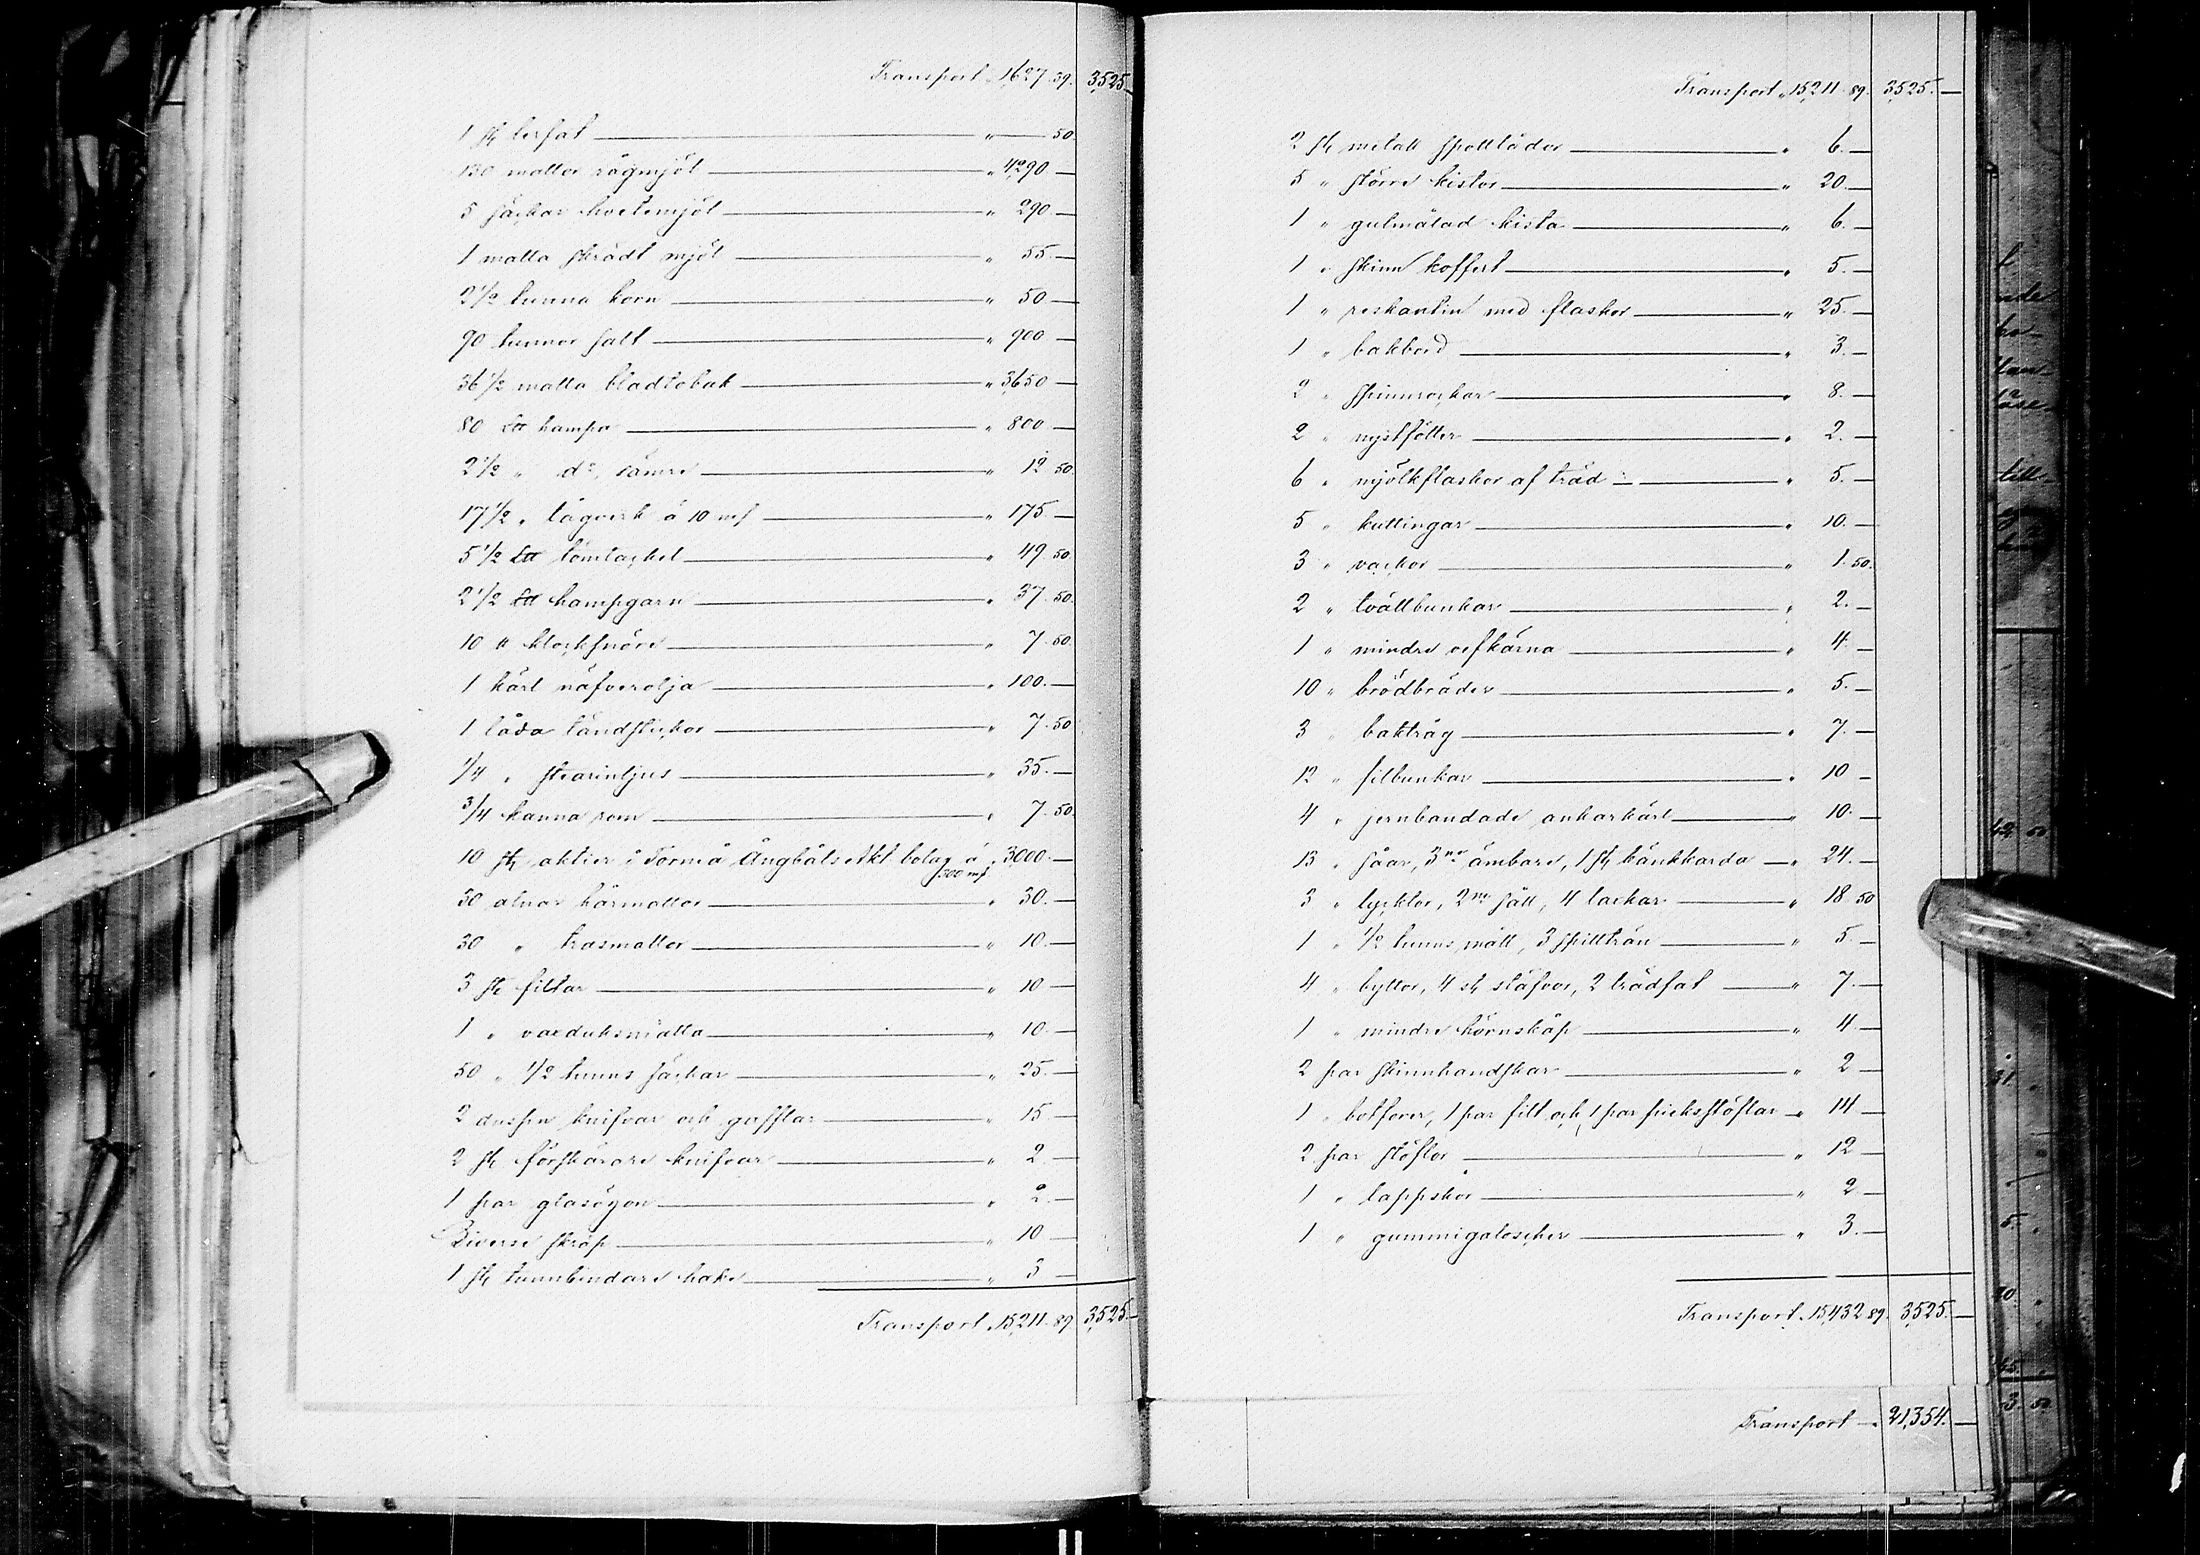 Transport " 1,627 39. 3,525.—
1 st lerfat — " — 50
130 mattor rågmjöl — " 4290 —
5 säckar hvetemjöl — " 290 —
1 matta skrädt mjöl — " 55. —
2 1/2 tunna korn — " 50 —
90 tunnor salt — " 900 —
36 1/2 matta bladtobak — " 3,650 —
80 L℔ hampa — " 800 —
2 1/2 " d:o, sämre — " 12 50
17 1/2 " tågverk à 10 mf — " 175 —
5 1/2 L℔ tömtackel — " 49 50
2 1/2 L℔ hampgarn — " 37. 50.
10 ℔ klocksnöre — " 7. 50.
1 kärl näfverolja — " 100. —
1 låda tändstickor — " 7. 50
1/4 " stearinljus — " 35. —
3/4 kanna rom — " 7. 50
10 st aktier i Tornia Ångbåts Akt. bolag à 300 mf. " 3000. —
30 alnar hårmattor — " 30. —
30 " trasmattor — " 10. —
3 st filtar — " 10 —
1 " vaxduksmatta — " 10. —
50 " 1/2 tunns säckar — " 25. —
2 dussin knifvar och gafflar — " 15 —
2 st förskärare knifvar — " 2 —
1 par glasögon — " 2. —
Diverse skräp — " 10 —
1 st tunnbindare hake — " 3 —
Transport " 15,211. 89 3,525. —
Transport " 15,211 89. 3,525. —
2 st metall spottlådor — " 6. —
5 " större kistor — " 20. —
1 " gulmålad kista — " 6. —
1 " skinn koffert — " 5. —
1 " reskantin med flaskor — " 25. —
1 " bakbord — " 3. —
2 " spinnrockar — " 8. —
2 " nystfötter — " 2. —
6 " mjölkflaskor af träd — " 5. —
5 " kuttingar — " 10. —
3 " vackor — " 1. 50.
2 " tvättbunkar — " 2. —
1 " mindre vefkärna — " 4. —
10 " brödbräder — " 5. —
3 " baktråg — " 7. —
12 " filbunkar — " 10 —
4 " jernbandade ankarkärl — " 10. —
13 " såar, 3ne ämbare, 1 st bänkkarda — " 24. —
3 " lycktor, 2ne såll, 4 lackar — " 18 50
1 " 1/2 tunns mått, 3 spilltrån — " 5. —
4 " byttor, 4 st stäfvor, 2 trädfat — " 7. —
1 " mindre hörnskåp — " 4. —
2 par skinnhandskar — " 2 —
1 " botforer, 1 par filt och 1 par pieksstöflar " 14 —
2 par stöflor — " 12 —
1 " lappskor — " 2 —
1 " gummigaloscher — " 3. —
Transport " 15,432 89. 3,525. —
Transport — " 21,354. —